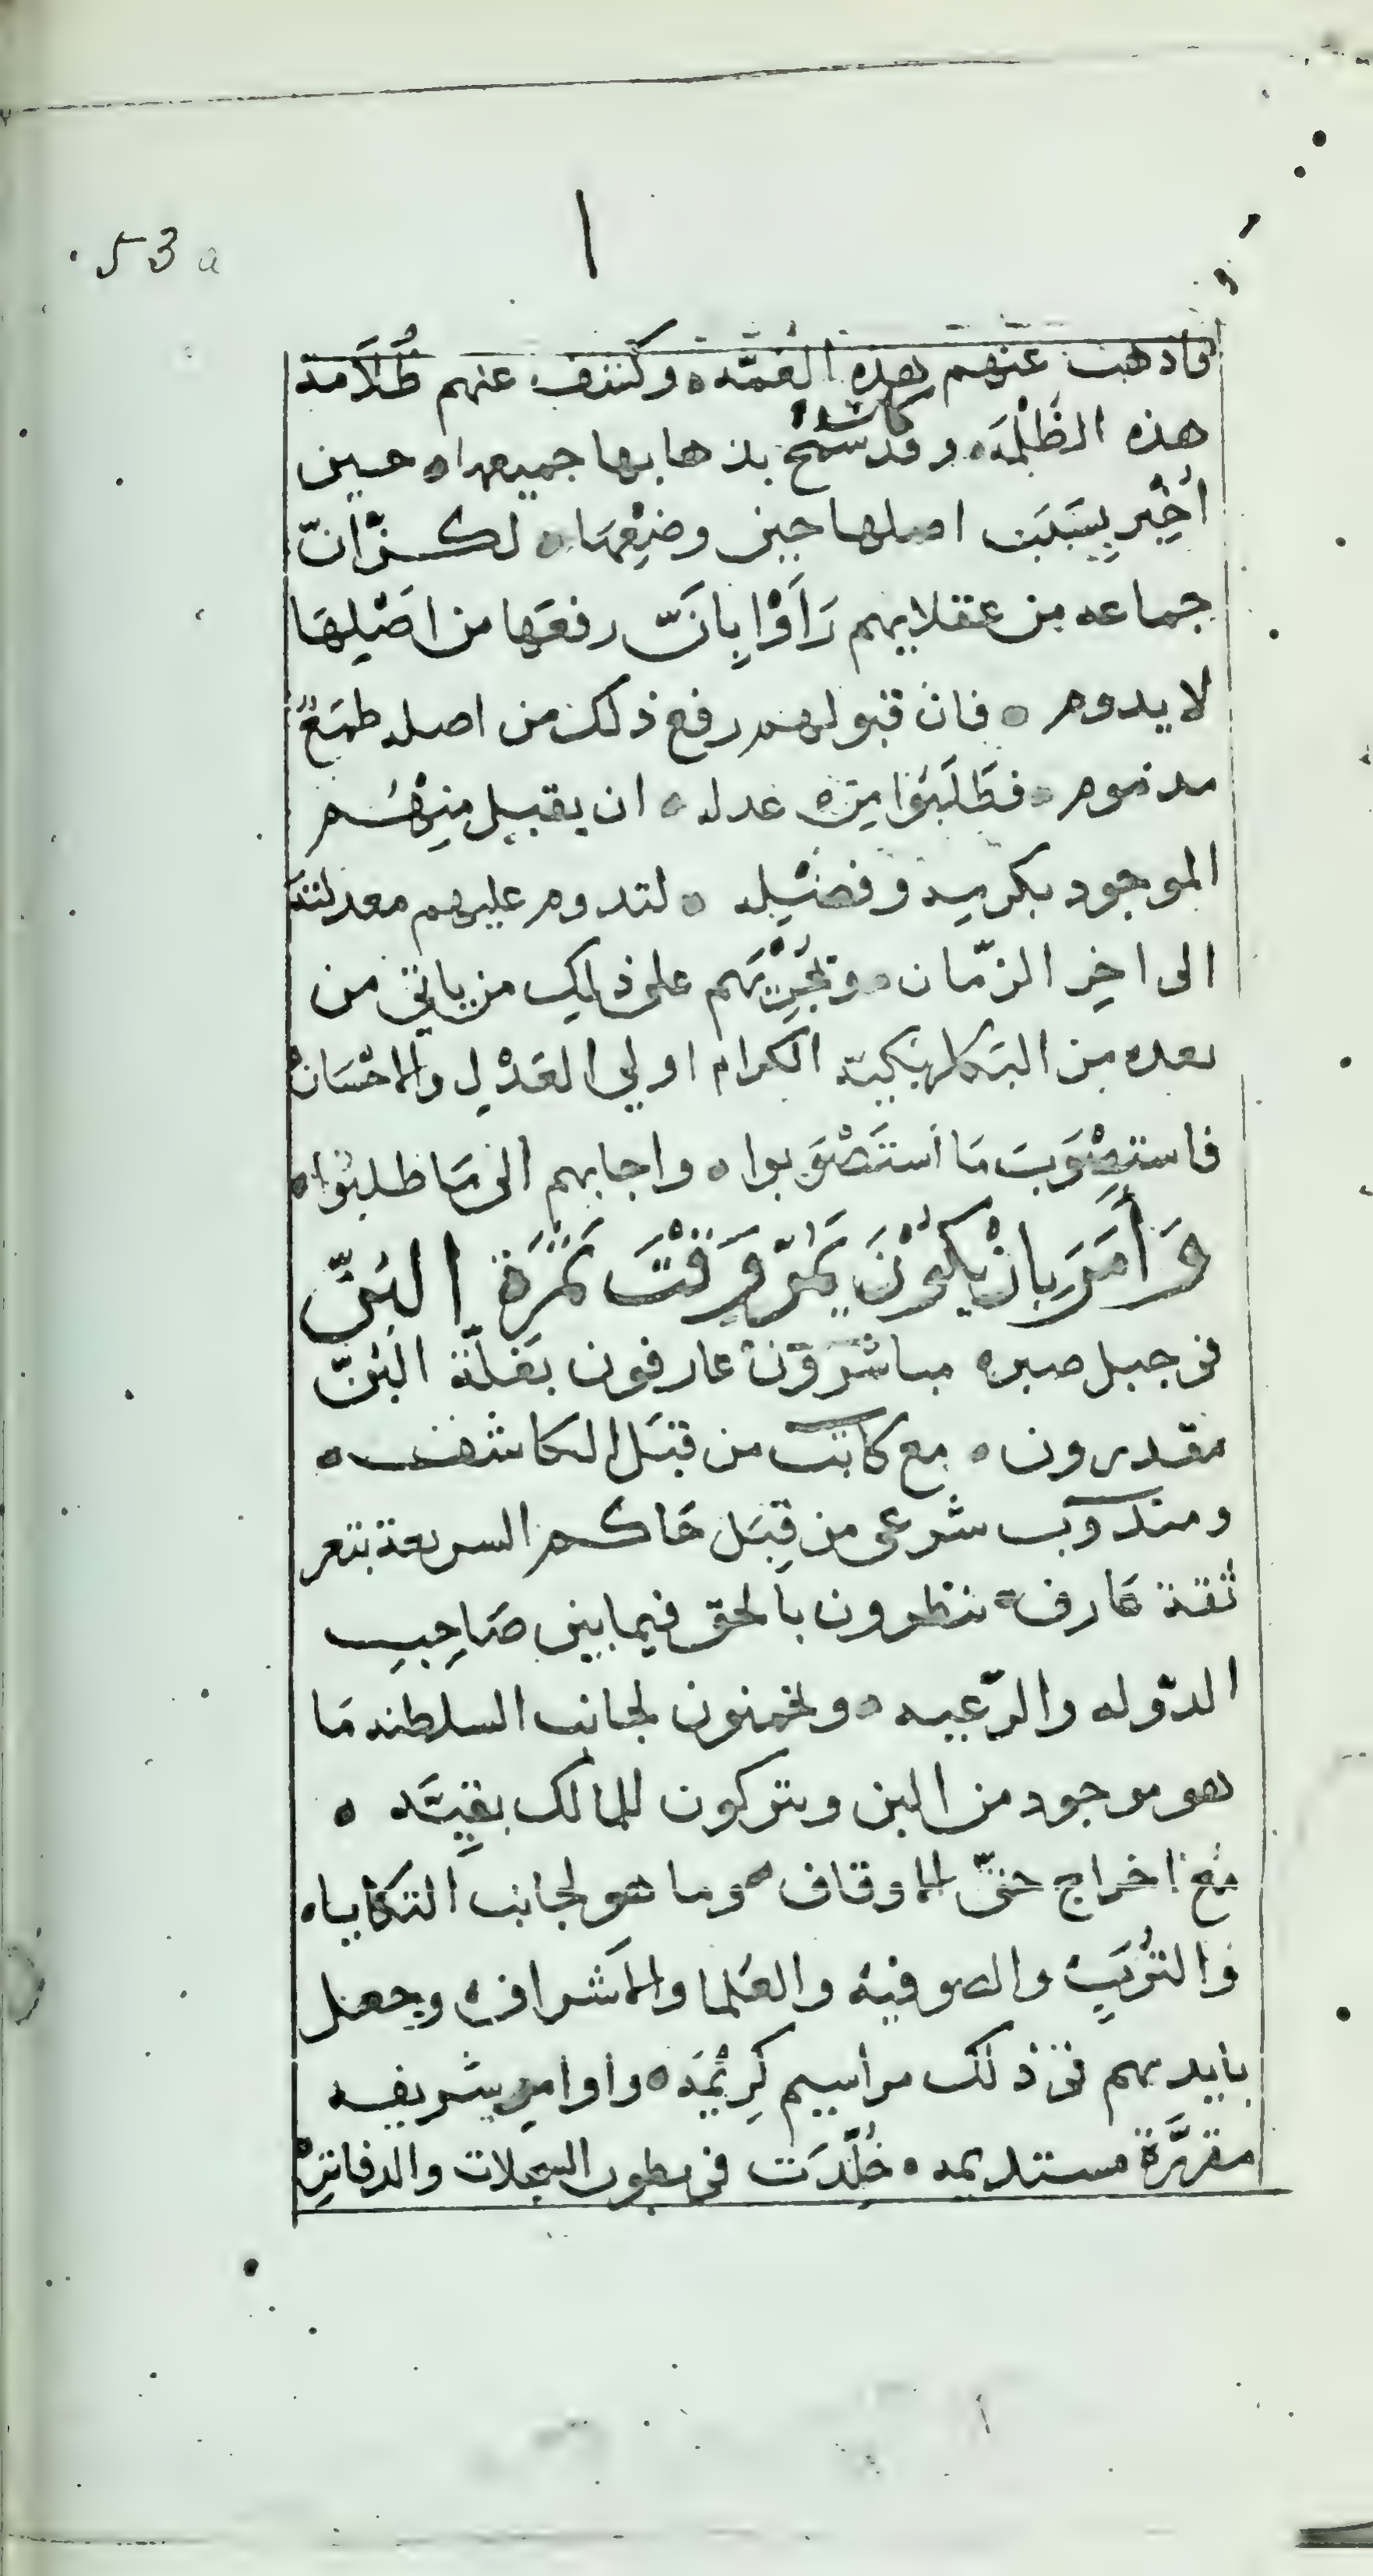 53 a
فاذهب عنهم بهذه الغمّه ۰ وكشف عنهم ظُلَامة
هذه الظُلْمَه ۰ وقد كان سَمَحَ بذهابها جميعها ۰ حين
أُخْبِر بِسَبَب اصلها حين وضعِهَا ۰ لكنّ انّ
جماعه من عقلايهم رَأَوْا بِانَّ رفعَها من اصْلِهَا
لا يدوم ۰ فان قبولهم رفع ذلك من اصله طمَعٌ
مذموم ۰ فطَلَبُوا مِن عدله ۰ ان يقبل مِنْهُم
الموجود بكرمه وفضْلِه ۰ لتدوم عليهم معدلته
الى اخِر الزّمان ۰ وتُجْرِيَهم على ذلِك من ياتى من
بعده من البَكلربَكيّه الكرام اولي العَدْلِ والاحْسَانْ
فاستصْوَبَ مَا استَصْوَبوا ۰ واجابهم الى مَا طلبُوا ۰
وَأَمَرَ بِانْ يكُوْنَ يَمُرّ وَقْتَ ثَمَرَة البُنِّ
في جبل صبر ۰ مباشرُوْن عارفون بغلّة البُنّ
مقدرون ۰ مع كاتب من قبَل الكاشف ۰
ومندوب شرعى من قِبَل حَاكم الشريعة بتعز
ثقة عَارف ۰ ينظرون بالحق فيما بين صَاحِبِ
الدّوله والرّعيه ۰ ويخمنون لجانب السلطنه مَا
هو موجود من البن ويتركون للمالك بقِيَّته ۰
مَع اخراج حقّ الاوقاف ۰ وما هو لجانب التكايا ۰
وَالتُرَبِ والصوفيّه والعُلما والاشراف ۰ وجعل
بايديهم في ذلك مراسيم كرِيْمَه ۰ واوامِر شريفه
مقرَّرَة مستديمه ۰ خُلِّدَت في بطون السجلات والدفاتِرْ